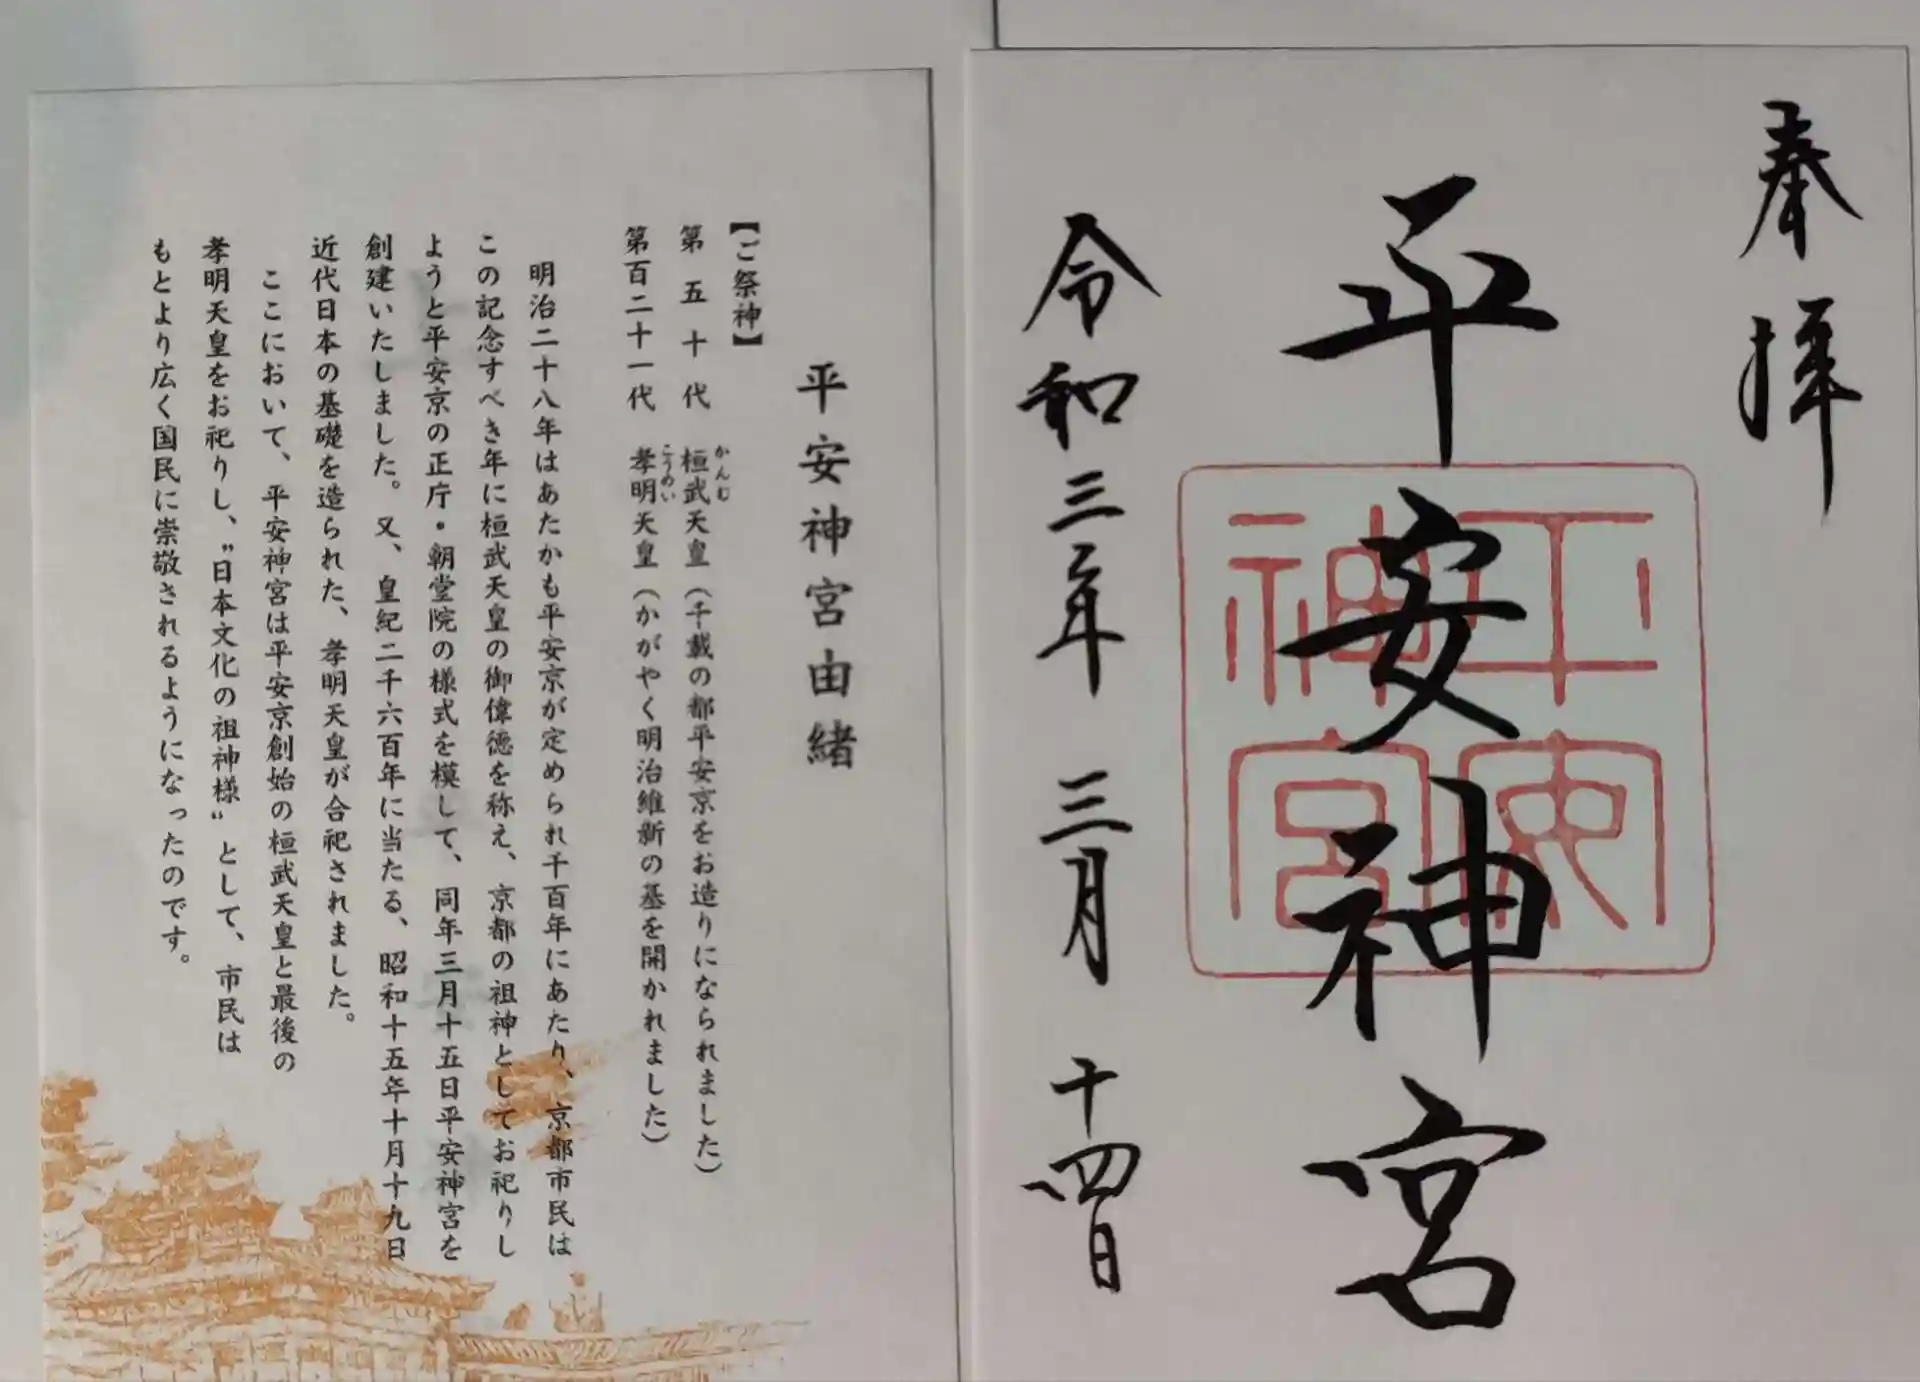 奉拝
平安神宮
平安神宮
令和三年 三月 十四日
平安神宮由緒
【ご祭神】
第五十代 桓武天皇(千載の都平安京をお造りになられました)
かんむ
第百二十一代 孝明天皇(かがやく明治維新の基を開かれました)
こうめい
明治二十八年はあたかも平安京が定められ千百年にあたり、京都市民は
この記念すべき年に桓武天皇の御偉徳を称え、京都の祖神としてお祀りし
ようと平安京の正庁・朝堂院の様式を模して、同年三月十五日平安神宮を
創建いたしました。又、皇紀二千六百年に当たる、昭和十五年十月十九日
近代日本の基礎を造られた、孝明天皇が合祀されました。
ここにおいて、平安神宮は平安京創始の桓武天皇と最後の
孝明天皇をお祀りし、〝日本文化の祖神様〟として、市民は
もとより広く国民に崇敬されるようになったのです。